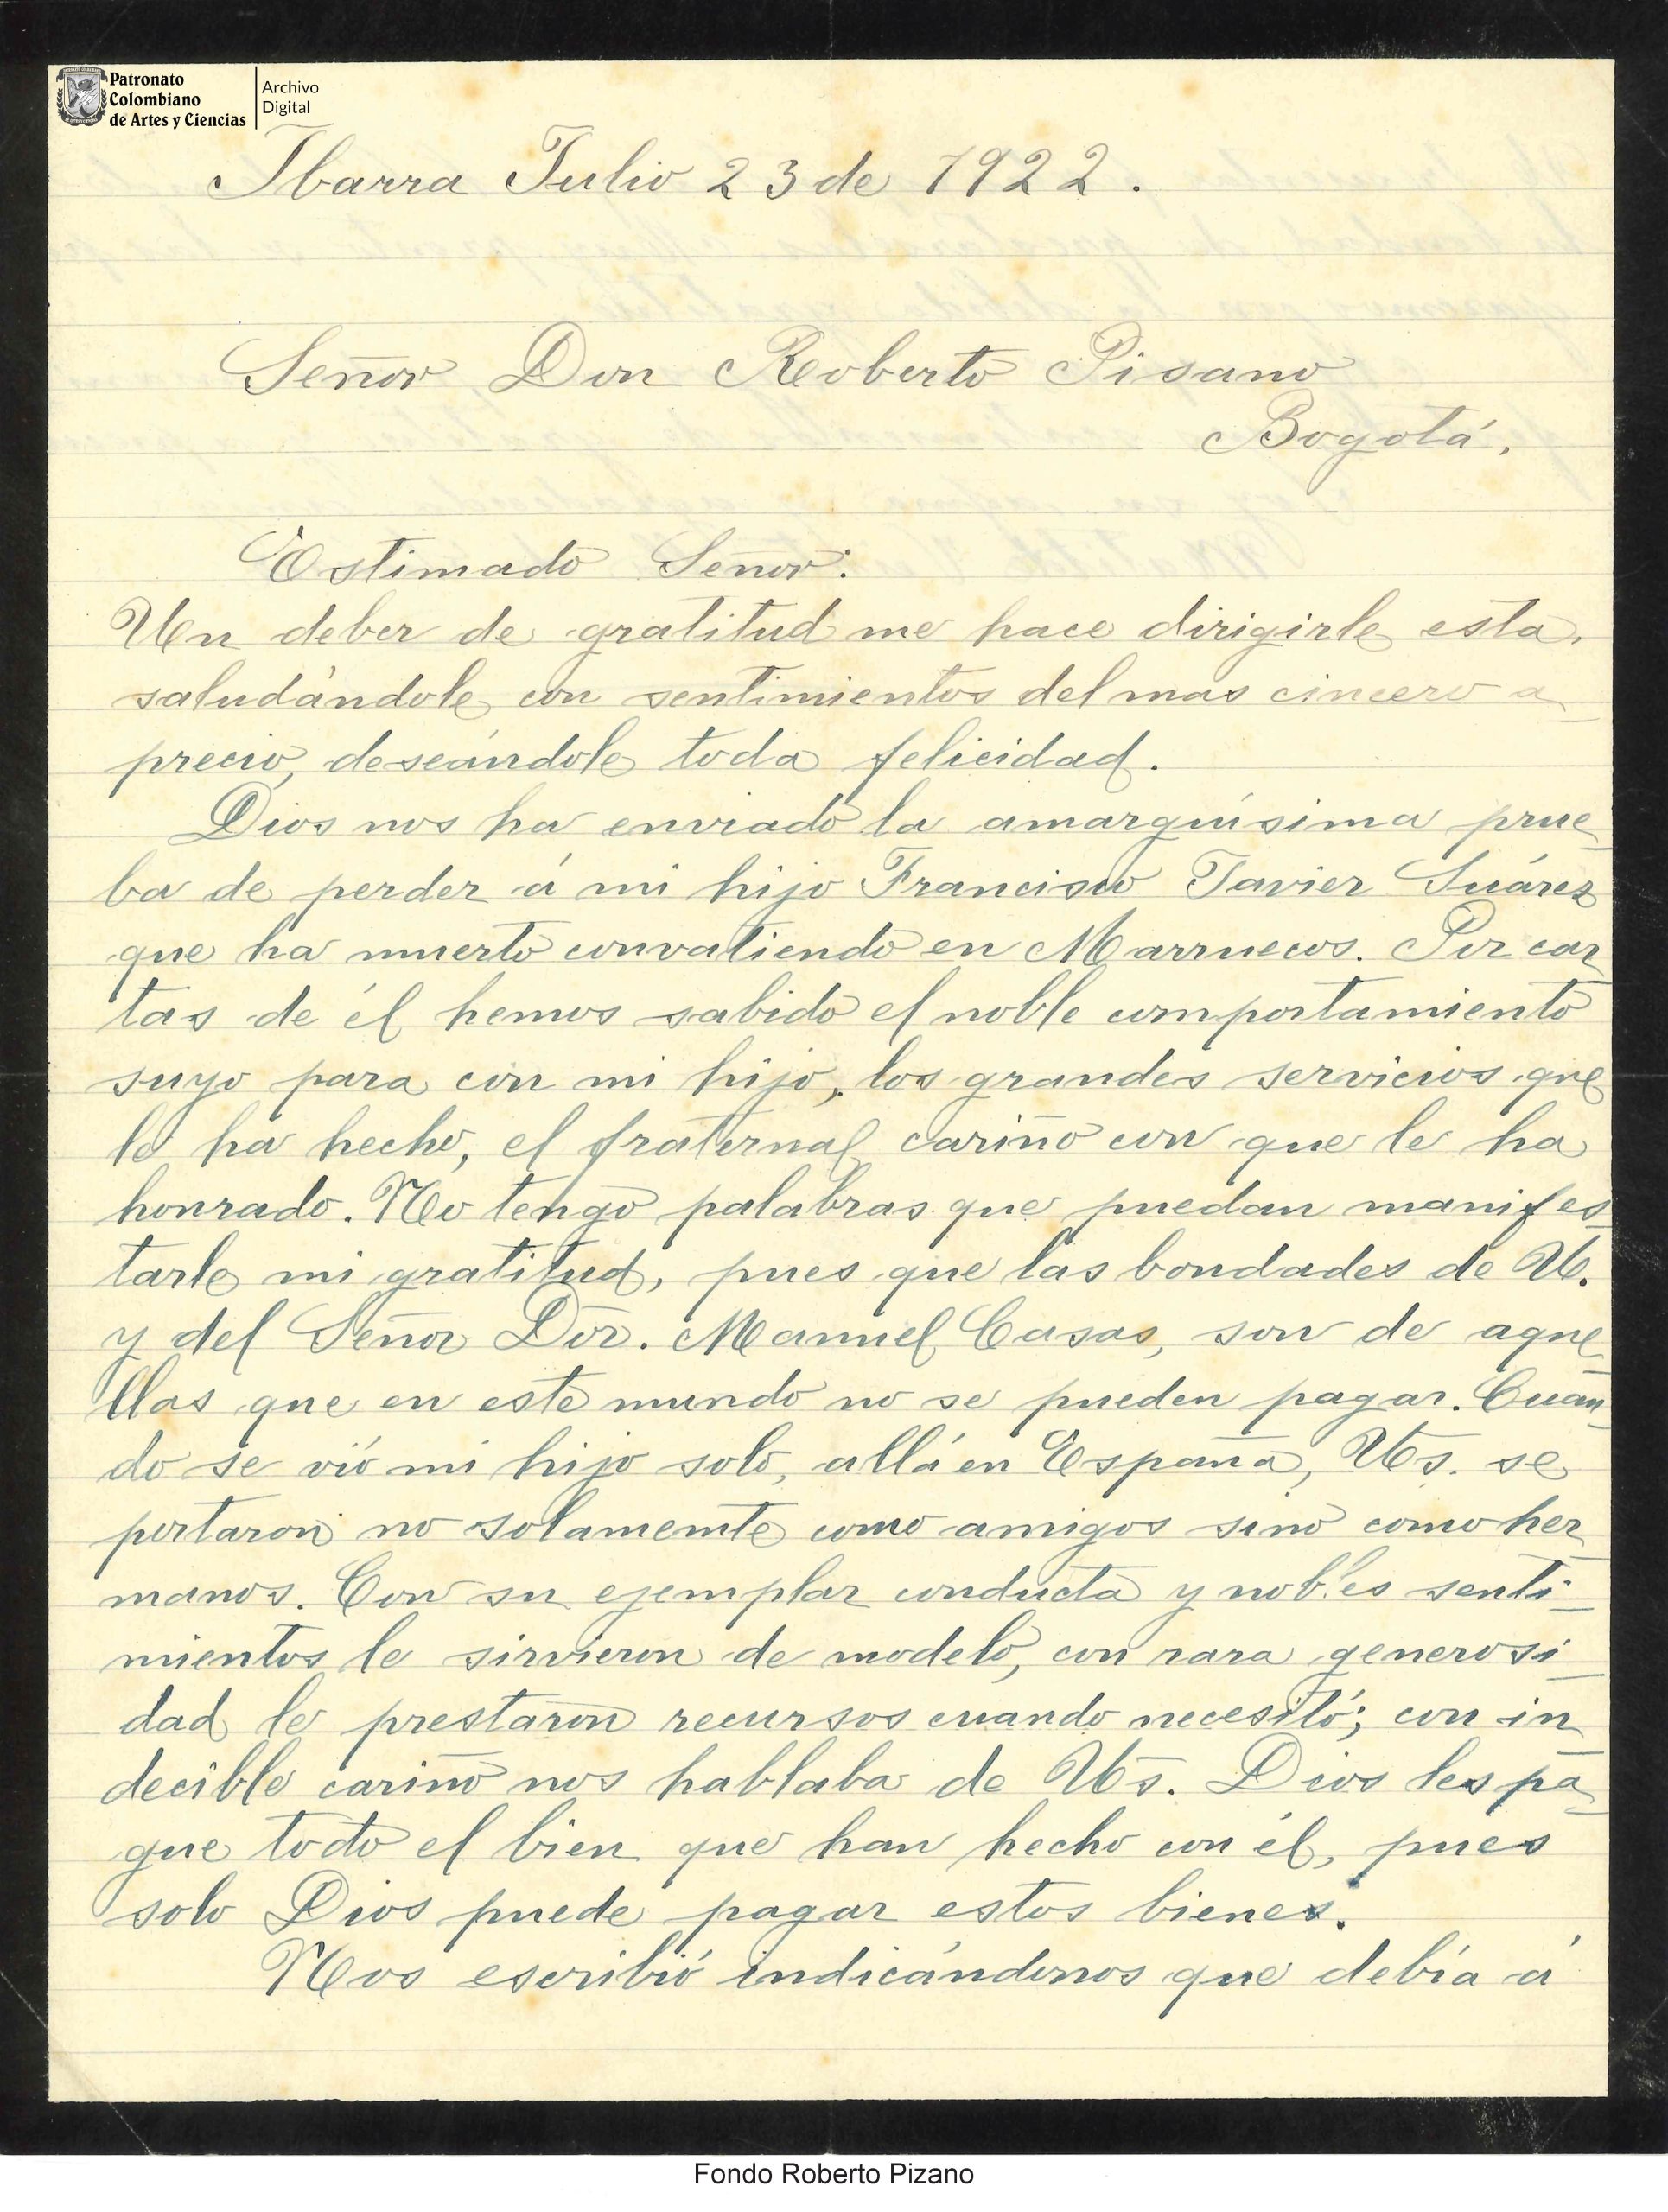 Patronato
Colombiano
de Artes y Ciencias
Archivo
Digital
Ibarra Julio 23 de 1922.
Señor Don Roberto Pisano
Bogotá.
Estimado Señor:
Un deber de gratitud me hace dirigirle esta,
saludándole con sentimientos del mas cincero a_
precio, deseándole toda felicidad.
Dios nos ha enviado la amarguísima prue_
ba de perder á mi hijo Francisco Javier Suárez
que ha muerto convatiendo en Marruecos. Por car_
tas de él hemos sabido el noble comportamiento
suyo para con mi hijo, los grandes servicios que
le ha hecho, el fraternal cariño con que le ha
honrado. No tengo palabras que puedan manifes_
tarle mi gratitud, pues que las bondades de U.
y del Señor Dor. Manuel Casas, son de aque_
llas que en este mundo no se pueden pagar. Cuan_
do se vió mi hijo solo, allá en España, Us. se
portaron no solamemte como amigos sino como her_
manos. Con su ejemplar conducta y nobles senti_
mientos le sirvieron de modelo, con rara generosi_
dad le prestaron recursos cuando necesitó; con in_
decible cariño nos hablaba de Us. Dios les pa_
gue todo el bien que han hecho con él, pues
solo Dios puede pagar estos bienes.
Nos escribió indicándonos que debía á
Fondo Roberto Pizano